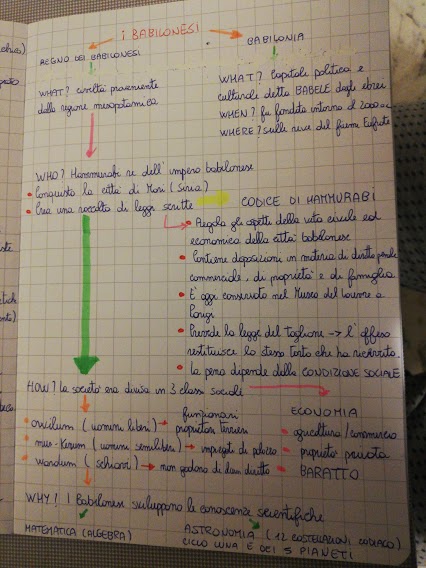 I BABILONESI
REGNO DEI BABILONESI
WHAT? civiltà proveniente
dalla regione mesopotamica
BABILONIA
WHAT? Capitale politica e
culturale detta BABELE dagli ebrei
WHEN? fu fondata intorno il 2000 a.C
WHERE? sulle rive del fiume Eufrate
WHO? Hammurabi re dell'impero babilonese
Conquistò la città di Mari (Siria)
Crea una raccolta di leggi scritte
CODICE DI HAMMURABI
Regola gli aspetti della vita civile ed
economica della città babilonese
Contiene disposizioni in materia di diritto penale
commerciale, di proprietà e di famiglia
È oggi conservato nel Museo del Louvre a
Parigi
Prevede la legge del taglione → l'offeso
restituisce lo stesso torto che ha ricevuto.
La pena dipende dalla CONDIZIONE SOCIALE
HOW? la società era divisa in 3 classi sociali
awilum (uomini liberi) → funzionari
proprietari terrieri
(uomini semiliberi) → impiegati di palazzo
wardum (schiavi) → non godono di alcun diritto
ECONOMIA
agricoltura/commercio
proprietà privata
BARATTO
WHY? I Babilonesi sviluppano le conoscenze scientifiche
MATEMATICA (ALGEBRA)
ASTRONOMIA (12 COSTELLAZIONI ZODIACO)
CICLO LUNA E DEI 5 PIANETI